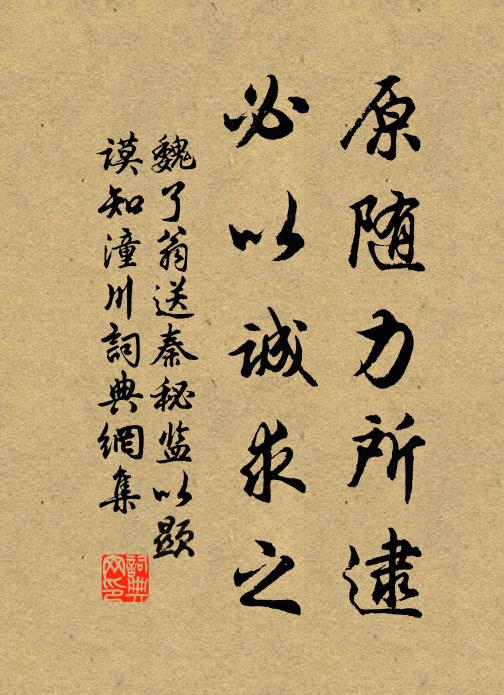 原随力所逮
必以诚求之
魏了翁送秦秘监以显
谟知潼川詞典網集
詞典
网印